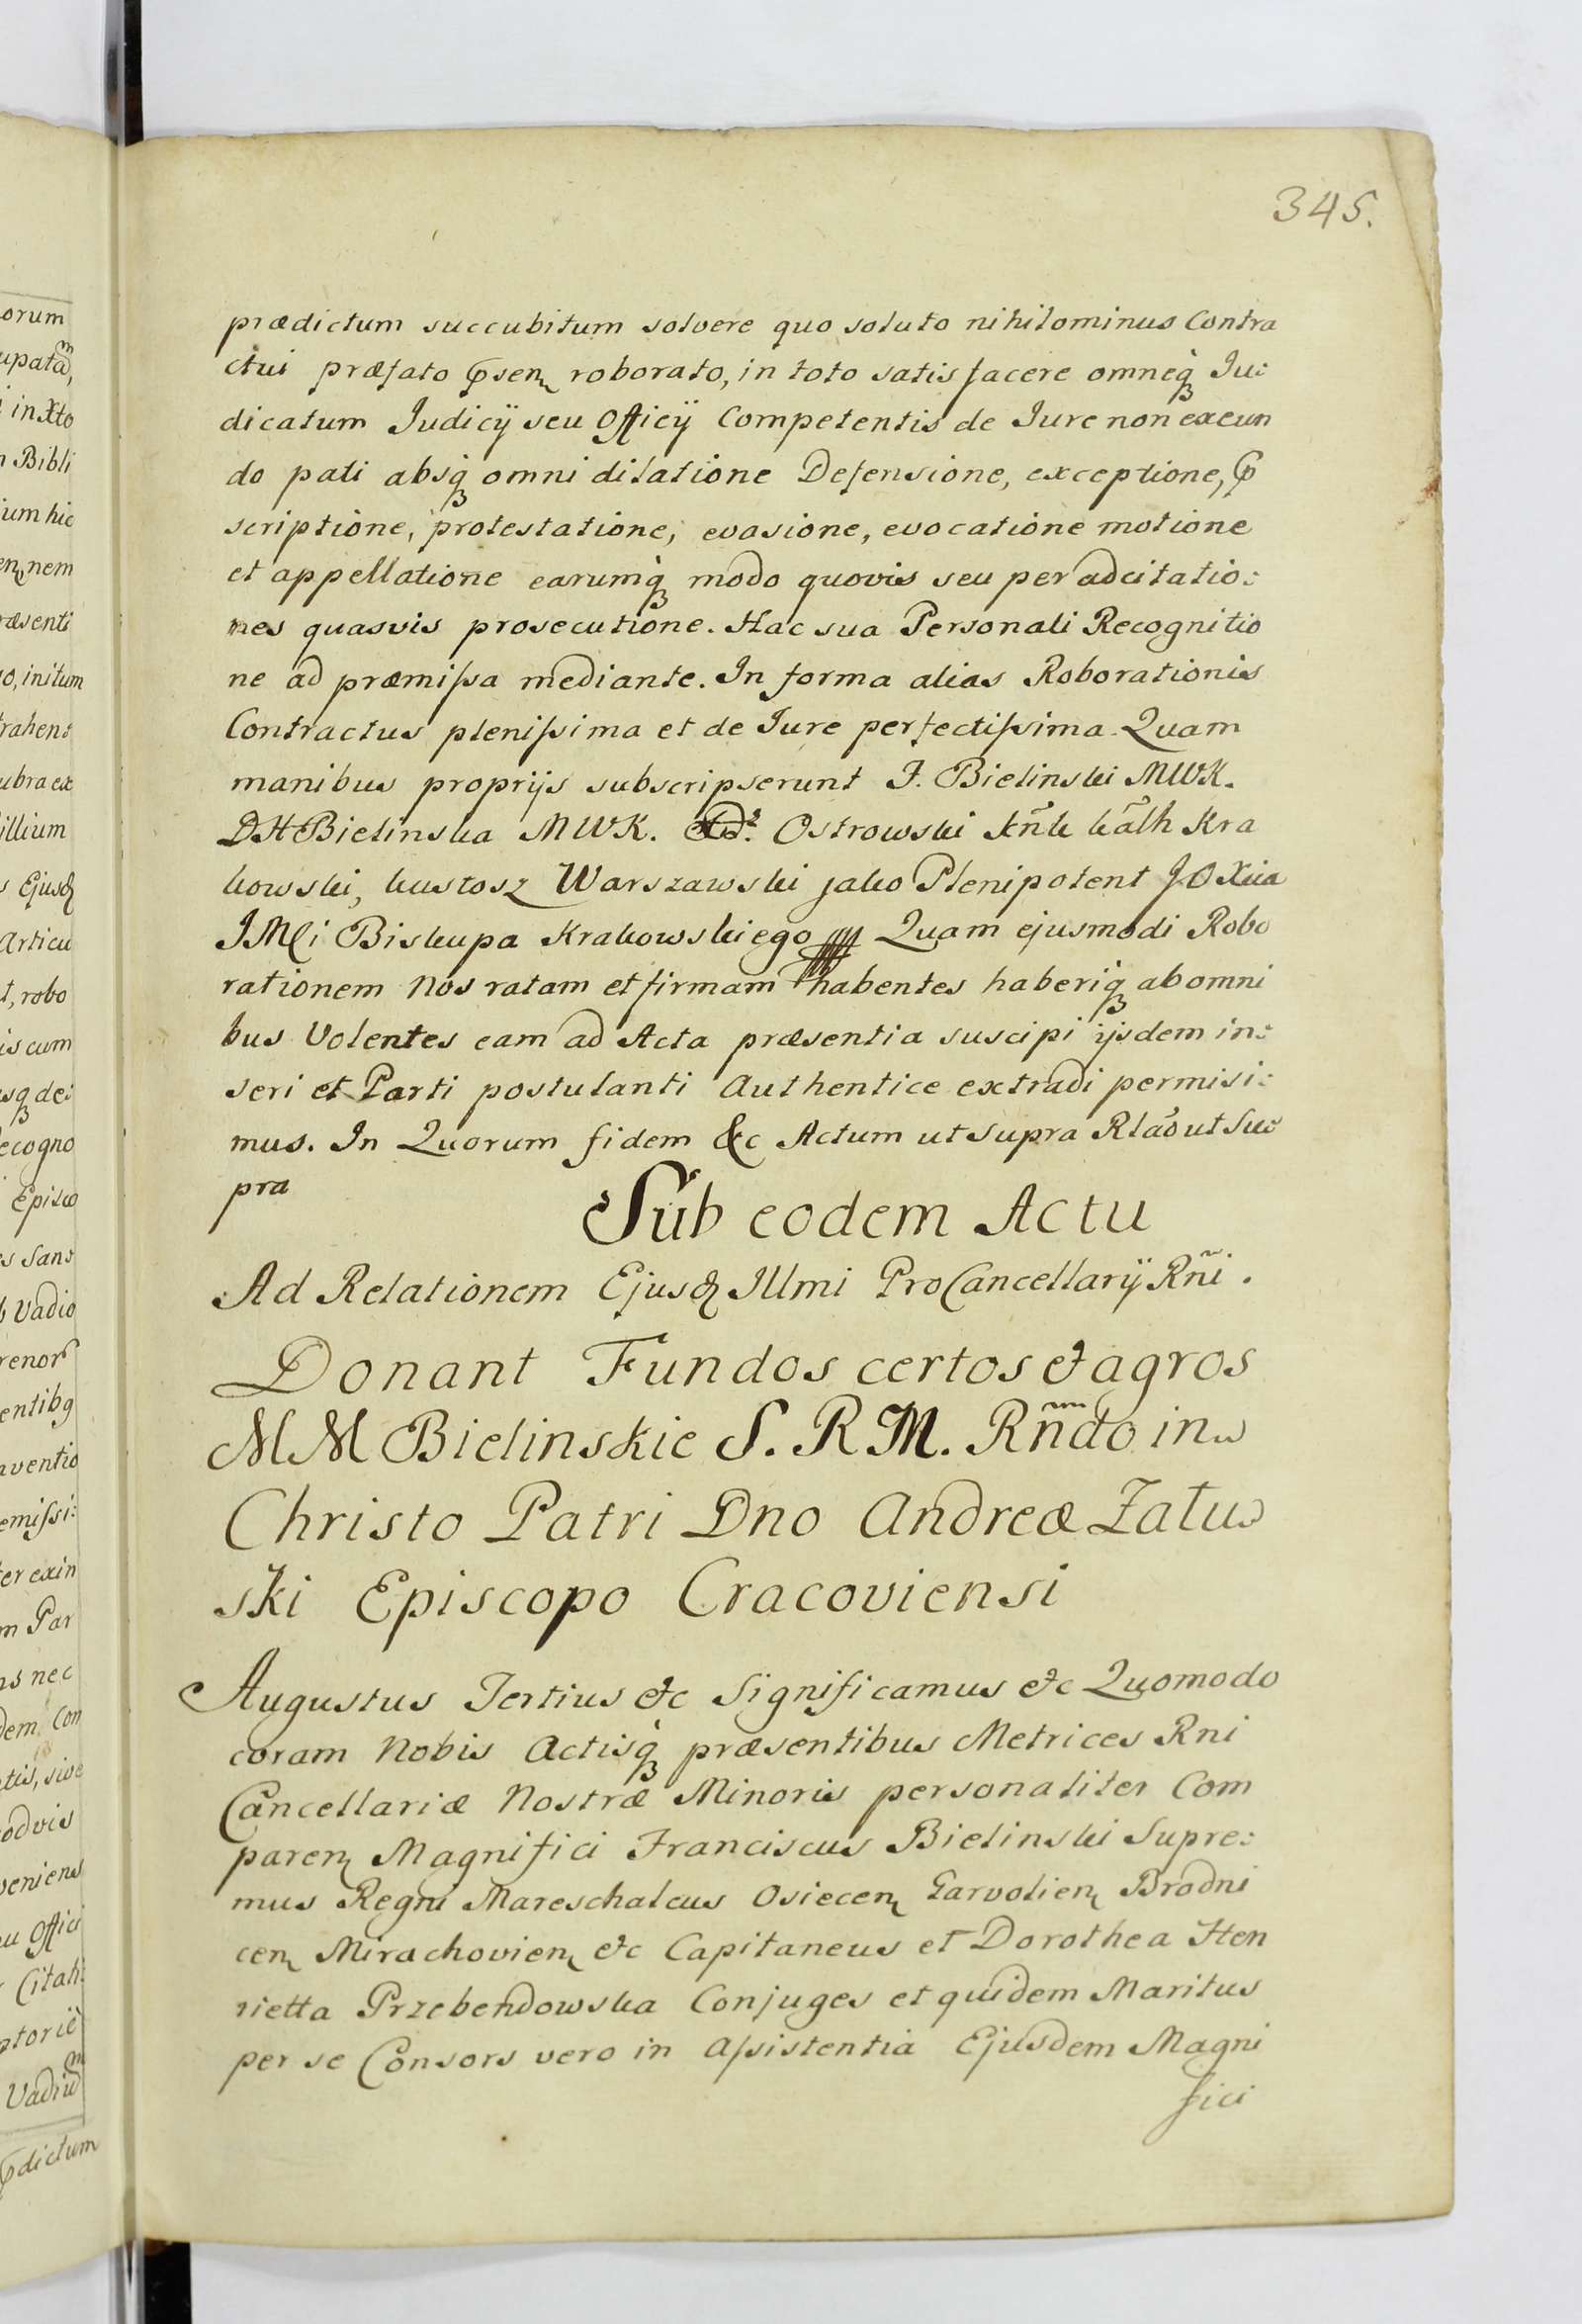 345.
prædictum succubitum solvere quo soluto nihilominus Contra
ctui præfato pnsen roborato, in toto satisfacere omneq Ju:
dicatum Judicÿ seu Officÿ Competentis de Jure non exeun
do pati absq omni dilatione Defensione, exceptione, p
scriptione, protestatione, evasione, evocatione motione
et appellatione earumq modo quovis seu per adcitatio:
nes quasvis prosecutione. Hac sua Personali Recognitio
ne ad præmissa mediante. In forma alias Roborationis
Contractus plenissima et de Jure perfectissima. Quam
manibus proprÿs subscripserunt F. Bielinski MWK.
DH Bielinska MWK. Ostrowski Kñk kãlh Kra
kowski, kustosz Warszawski jako Plenipotent JO Xcia
JMci Biskupa Krakowskiego Quam ejusmodi Robo
rationem Nos ratam et firmam habentes haberiq ab omni
bus Volentes eam ad Acta præsentia suscipi ÿsdem in:
seri et Parti postulanti Authentice extradi permisi:
mus. In Quorum fidem &c Actum ut Supra Rlão ut Su:
pra
Sub eodem Actu
Ad Relationem Ejusd Illmi ProCancellarÿ Rñi.
Donant Fundos certos et agros
MM Bielinskie S. R M. Rñdo in
Christo Patri Dno Andreæ Załus
ski Episcopo Cracoviensi
Augustus Tertius etc Significamus etc Quomodo
coram Nobis Actisq præsentibus Metrices Rni
Cancellariæ Nostræ Minoris personaliter Com
paren Magnifici Franciscus Bielinski Supre:
mus Regni Mareschalcus Osiecen Garvolien Brodni
cen Mirachovien etc Capitaneus et Dorothea Hen
rietta Przebendowska Conjuges et quidem Maritus
per se Consors vero in Assistentia Ejusdem Magni
fici